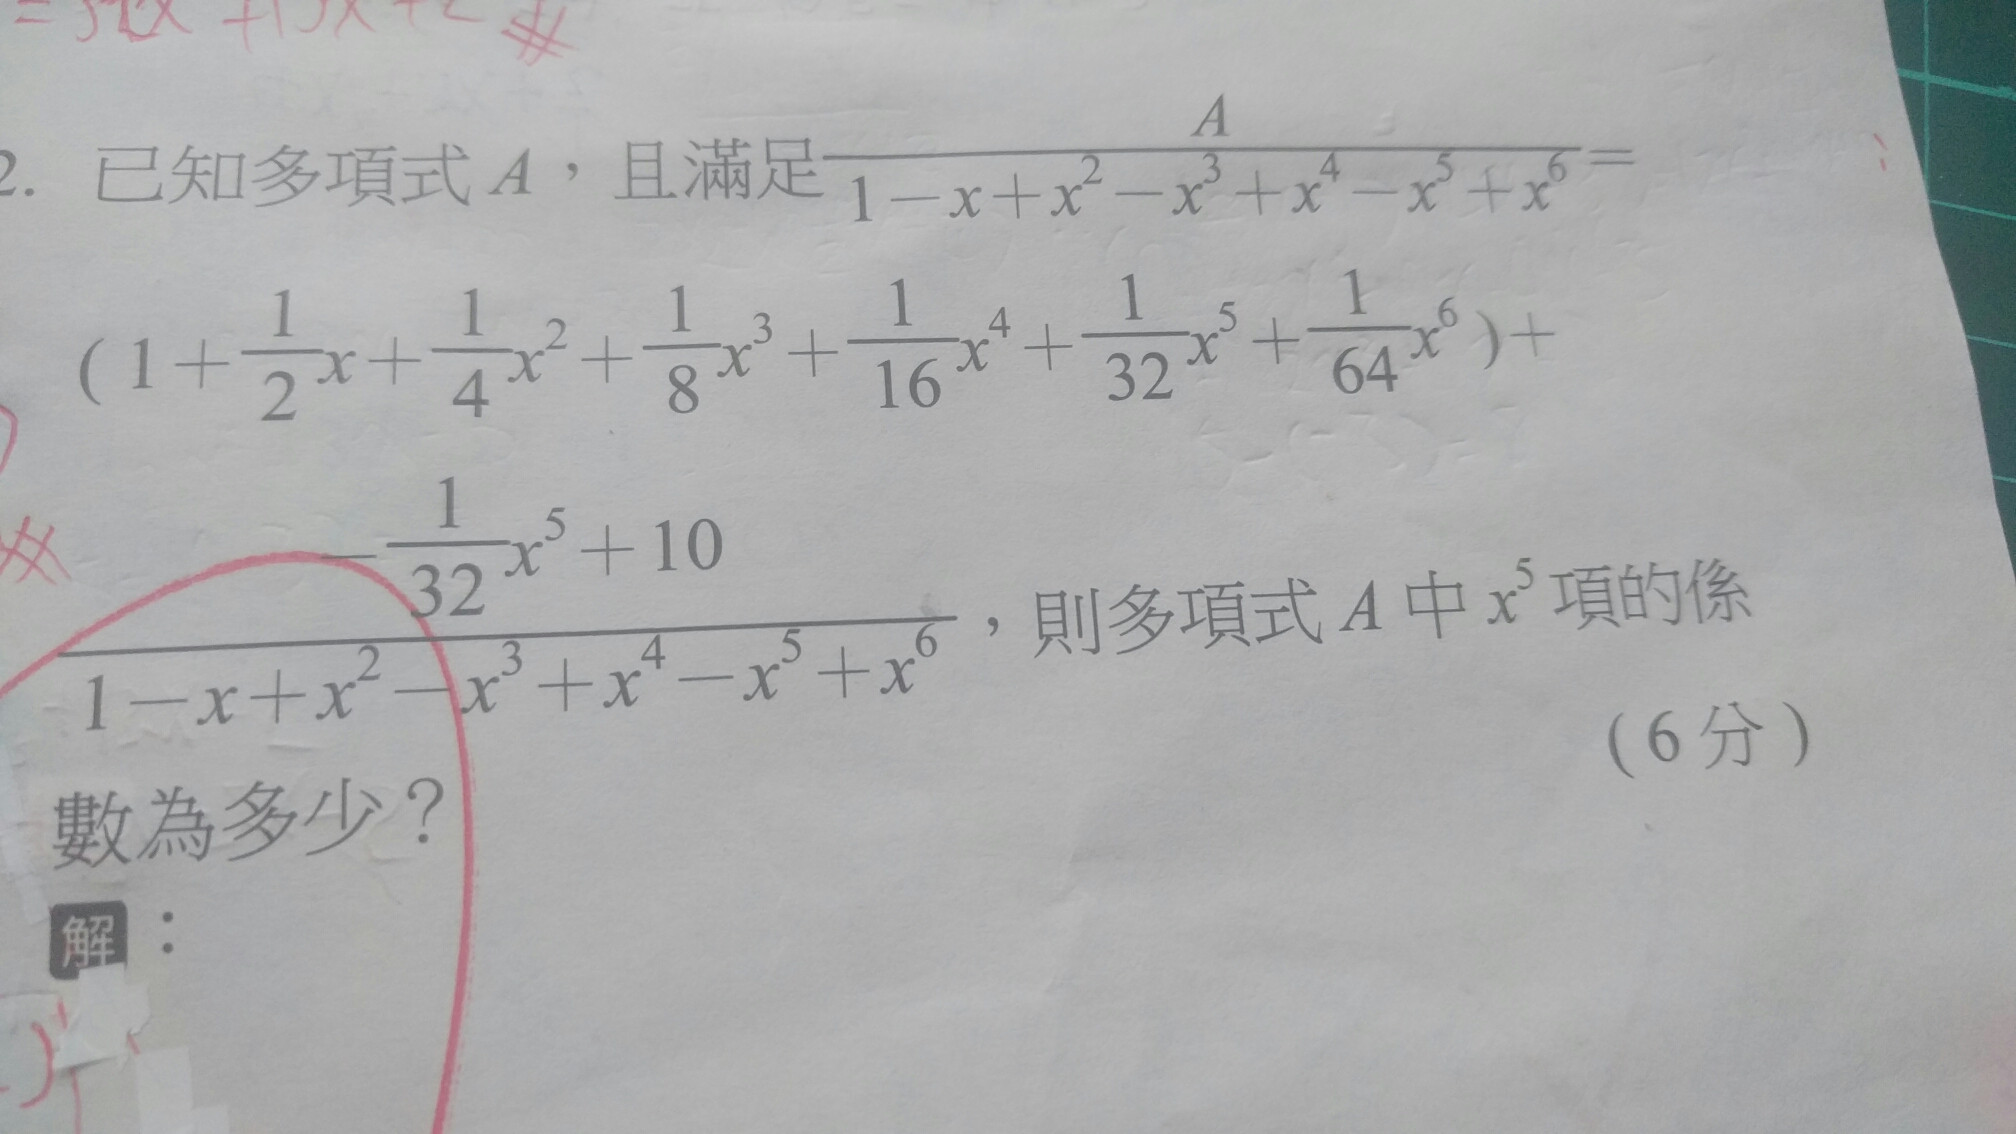 2. 已知多項式 A，且滿足 A/(1-x+x²-x³+x⁴-x⁵+x⁶) =
(1+1/2x+1/4x²+1/8x³+1/16x⁴+1/32x⁵+1/64x⁶)+
(-1/32x⁵+10)/(1-x+x²-x³+x⁴-x⁵+x⁶)，則多項式 A 中 x⁵ 項的係
數為多少？ （6 分）
解：